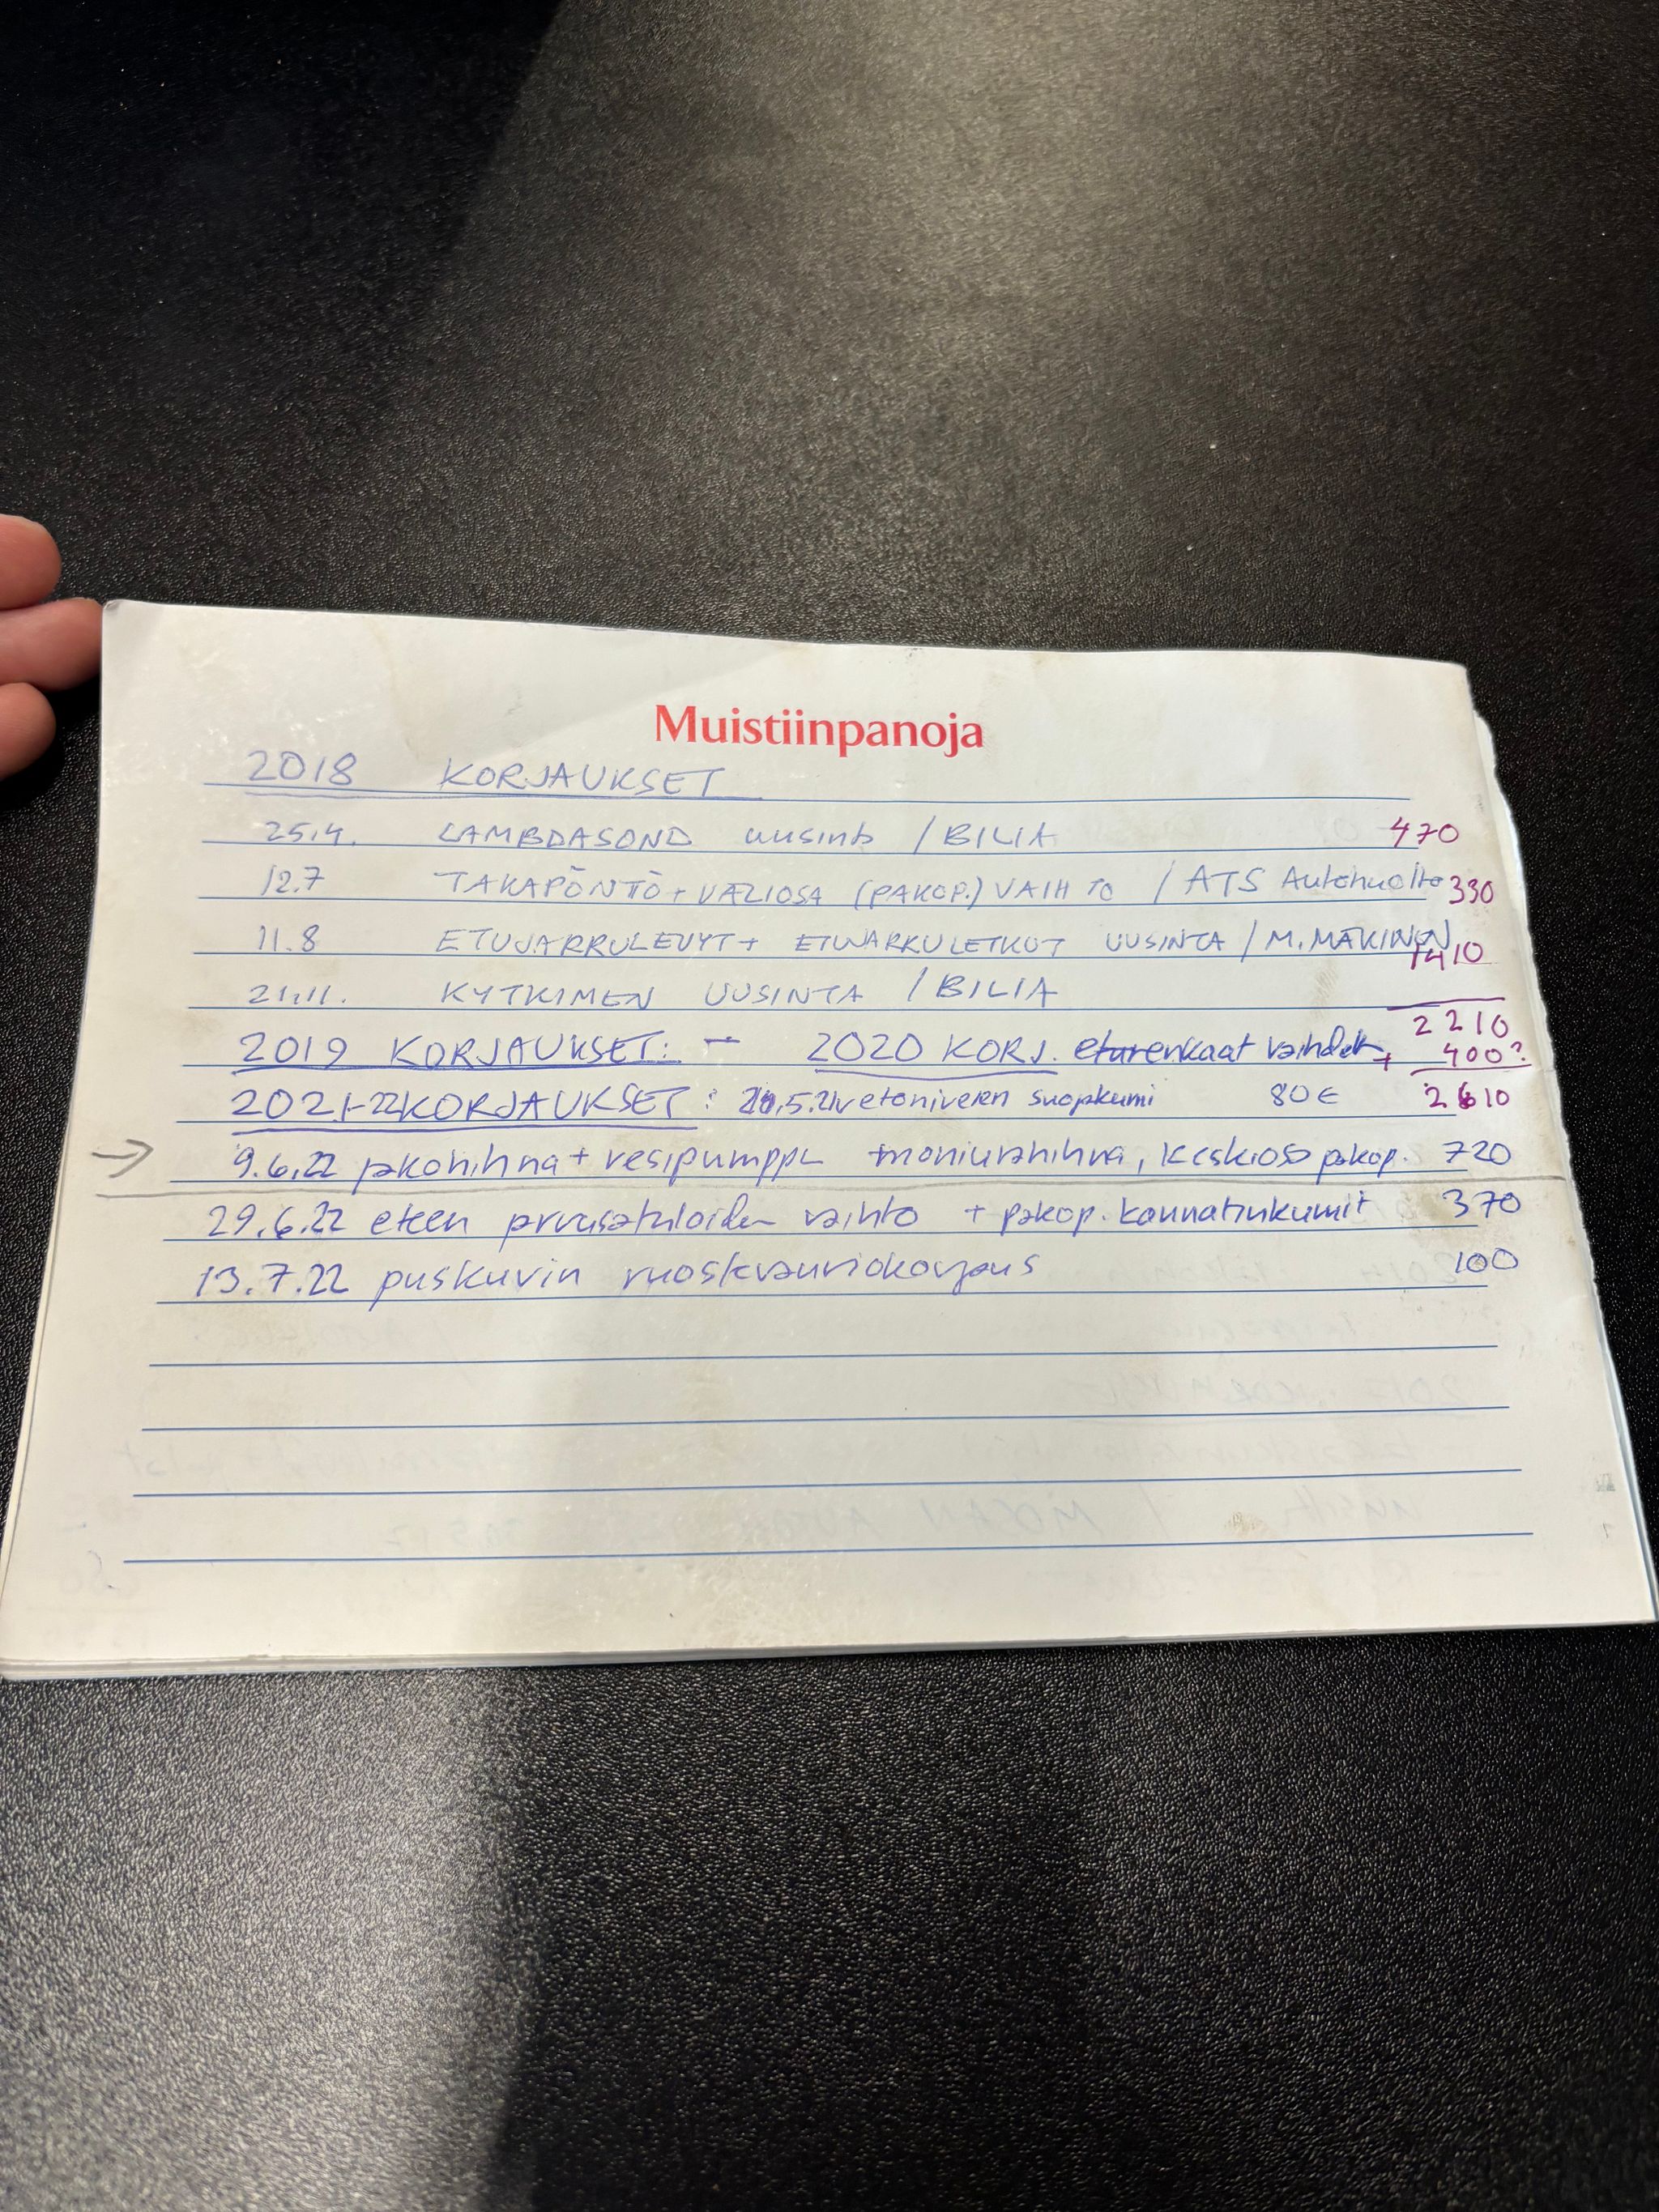 Muistiinpanoja
2018 KORJAUKSET
25.4. LAMBDASOND uusinta / BILIA 470
12.7 TAKAPÖNTTÖ + VÄLIOSA (PAKOP.) VAIHTO / ATS Autohuolto 330
11.8 ETUJARRULEVYT + ETUJARRULETKUT UUSINTA / M. MÄKINEN
1410
21.11. KYTKIMEN UUSINTA / BILIA
2210
2019 KORJAUKSET: - 2020 KORJ. eturenkaat vaihdettu + 400?
2021-22 KORJAUKSET: 20.5.21 vetonivelen suojakumi 80€ 2610
→ 9.6.22 jakohihna + vesipumppu moniurahihna, keskiosa pakop. 720
29.6.22 eteen jarrusatuloiden vaihto + pakop. kannatinkumit 370
13.7.22 puskurin ruostevauriokorjaus 100